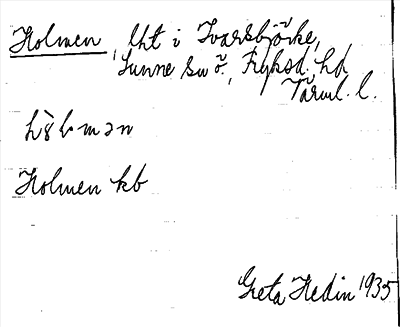 Holmen, lht i Ivarsbjörke,
Sunne sn ö., Fryksd. hd
Värml. l.
hò̀lmən
Holmen kb
Greta Hedin 1935